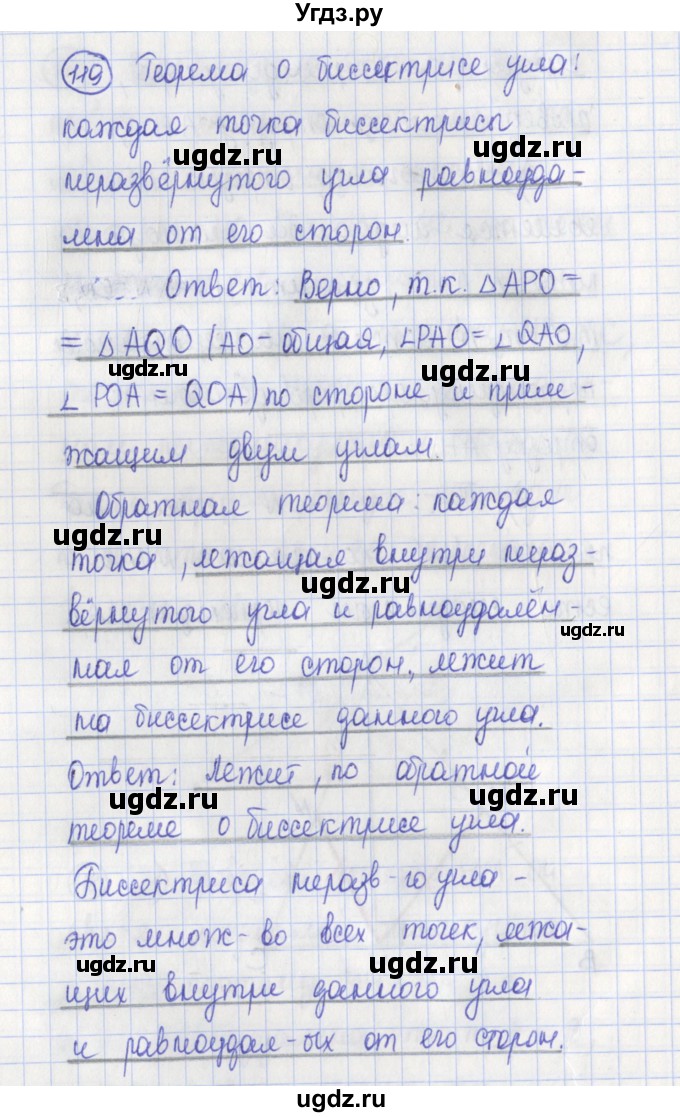 Угдз.ру
119 Теорема о биссектрисе угла:
каждая точка биссектрисы
неразвёрнутого угла равноуда-
лена от его сторон.
Ответ: Верно, т.к. △APO =
= △AQO (AO - общая, ∠PAO = ∠QAO,
∠POA = QOA) по стороне и приле-
жащим двум углам.
Обратная теорема: каждая
точка, лежащая внутри нераз-
вёрнутого угла и равноудалён-
ная от его сторон, лежит
на биссектрисе данного угла.
Ответ: Лежит, по обратной
теореме о биссектрисе угла.
Биссектриса неразв-го угла -
это множ-во всех точек, лежа-
щих внутри данного угла
и равноудал-ых от его сторон.
ugdz.ru
ugdz.ru
ugdz.ru
ugdz.ru
ugdz.ru
ugdz.ru
ugdz.ru
ugdz.ru
ugdz.ru
ugdz.ru
ugdz.ru
ugdz.ru
ugdz.ru